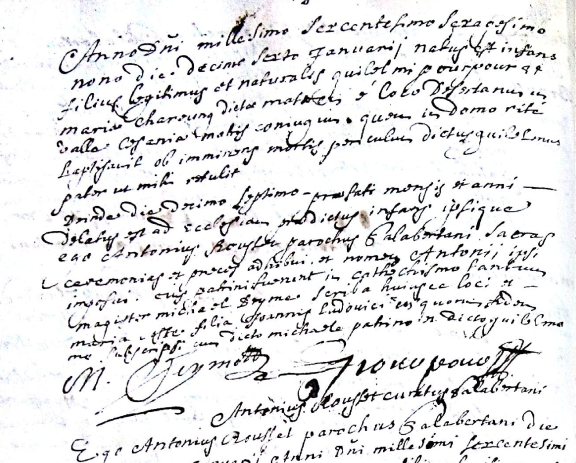 Anno Dni millesimo sexcentesimo sexagesimo
nono die decimo sexto Januarij natus est infans
filius legitimus et naturalis guilelmi pourpour et
mariæ chareung dictæ e loco Desertanus in
valle Cesania motis coniugum quem in domo rite
baptisavit ob imminens mortis periculum dictus guilelmus
pater ut mihi retulit
deinde die decimo septimo præfati mensis et anni
Delatus est ad ecclesiam prædictus infans ipsique
ego Antonius Rousset parochus Salabertani sacras
ceremonias et preces adhibui et nomen Antonij ipsi
imposui eius patrini fuerunt in cathechismo tantum
magister michael Eyme scriba huiusce loci et
maria filia Joannis Ludovici in quorum fidem
me subscripsi cum dicto michaele patrino et dicto guilelmo
M. Eyme
Antonius Rousset curatus Salabertani
Ego Antonius Rousset parochus Salabertani die
Anni Dni millesimi sexcentesimi